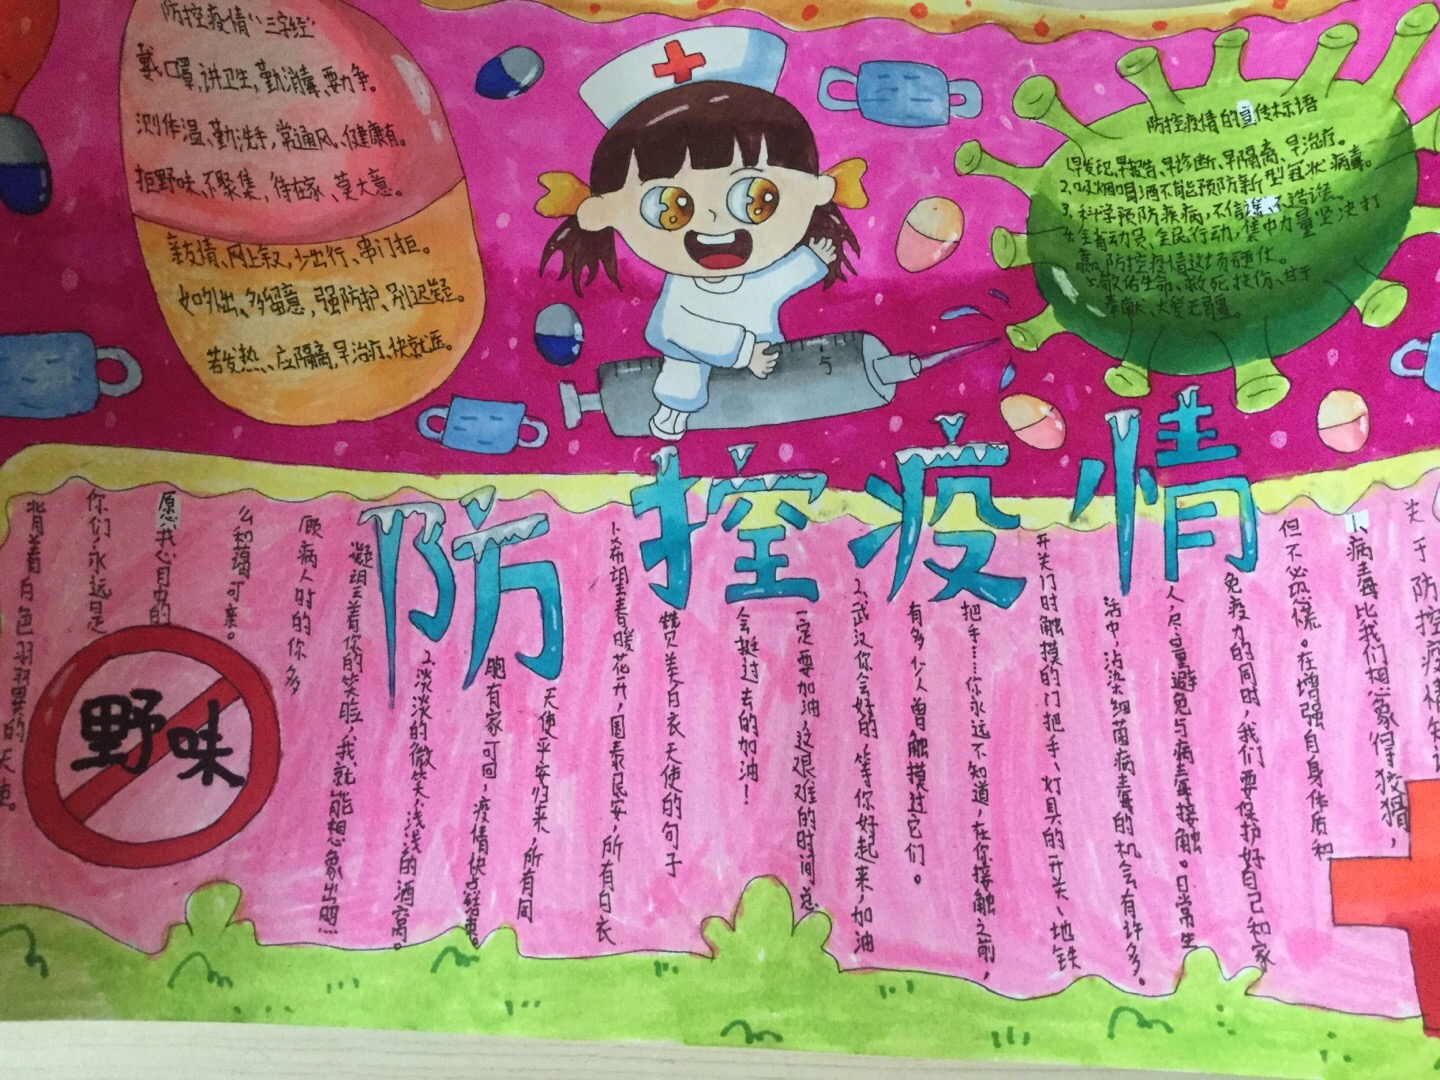 防控疫情“三字经”
戴口罩,讲卫生,勤消毒、要力争。
测体温、勤洗手,常通风、健康有。
拒野味、不聚集,待在家、莫大意。
亲友情、网上叙,少出行、串门拒。
如外出、多留意,强防护、别迟疑。
若发热、应隔离,早治疗、快就医。
防控疫情的宣传标语
1.早发现、早报告、早诊断、早隔离、早治疗。
2.吸烟喝酒不能预防新型冠状病毒。
3.科学预防疾病,不信谣、不造谣。
4.全省动员、全民行动,集中力量坚决打
赢防控疫情这场硬仗。
5.敬佑生命、救死扶伤、甘于
奉献、大爱无疆。
5
防控疫情
关于防控疫情知识
1、病毒比我们想象得狡猾,
但不必恐慌。在增强自身体质和
免疫力的同时,我们要保护好自己和家
人,尽量避免与病毒接触。日常生
活中,沾染细菌病毒的机会有许多。
开关门时触摸的门把手、灯具的开关、地铁
把手……你永远不知道,在你接触之前,
有多少人曾触摸过它们。
2.武汉你会好的,等你好起来,加油
一定要加油,这艰难的时间总
会挺过去的加油!
赞美白衣天使的句子
1.希望春暖花开,国泰民安,所有白衣
天使平安归来,所有同
胞有家可回,疫情快点结束。
2.淡淡的微笑,浅浅的酒窝。
凝望着你的笑脸,我就能想象出照
顾病人时的你多
么和蔼可亲。
愿我心目中的
你们永远是
背着白色羽翼的天使。
野味